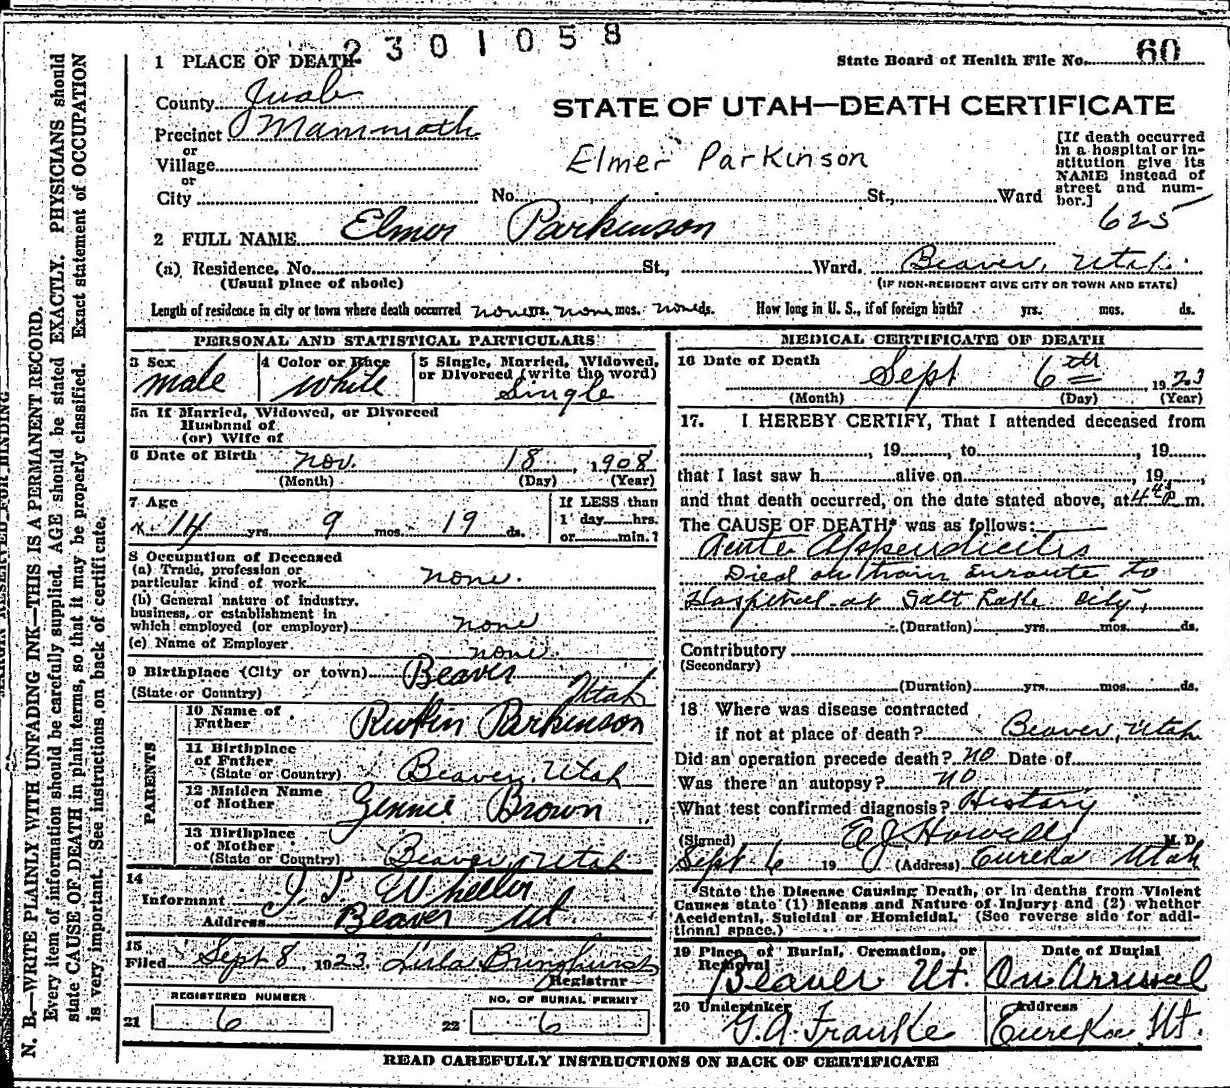 2301058
1 PLACE OF DEATH
State Board of Health File No. 60
County Juab
STATE OF UTAH—DEATH CERTIFICATE
Precinct Mammoth
or
Village
or
City
Elmer Parkinson
[If death occurred
in a hospital or in-
stitution give its
NAME instead of
street and num-
ber.]
No. St., Ward
625
2 FULL NAME Elmer Parkinson
(a) Residence. No. St., Ward. Beaver, Utah.
(Usual place of abode) (IF NON-RESIDENT GIVE CITY OR TOWN AND STATE)
Length of residence in city or town where death occurred none yrs. none mos. none ds. How long in U. S., if of foreign birth? yrs. mos. ds.
PERSONAL AND STATISTICAL PARTICULARS
3 Sex male
4 Color or Race white
5 Single, Married, Widowed,
or Divorced (write the word)
Single
5a If Married, Widowed, or Divorced
Husband of
(or) Wife of
6 Date of Birth Nov. 18, 1908
(Month) (Day) (Year)
7 Age
14 yrs. 9 mos. 19 ds.
If LESS than
1 day hrs.
or min.?
8 Occupation of Deceased
(a) Trade, profession or
particular kind of work none.
(b) General nature of industry,
business, or establishment in
which employed (or employer) none
(c) Name of Employer none.
9 Birthplace (City or town) Beaver
(State or Country) Utah
PARENTS
10 Name of
Father Parkinson
11 Birthplace
of Father
(State or Country) Beaver, Utah
12 Maiden Name
of Mother Jennie Brown
13 Birthplace
of Mother
(State or Country) Beaver, Utah
14
Informant Wheeler
Address Beaver Ut.
15
Filed Sept 8 1923. Lula Bringhurst
Registrar
REGISTERED NUMBER
21 6
NO. OF BURIAL PERMIT
22 6
MEDICAL CERTIFICATE OF DEATH
16 Date of Death Sept 6th, 1923
(Month) (Day) (Year)
17. I HEREBY CERTIFY, That I attended deceased from
, 19 , to , 19
that I last saw h alive on , 19 ,
and that death occurred, on the date stated above, at P. m.
The CAUSE OF DEATH* was as follows:
Acute Appendicitis
Died on train enroute to
Hospital at Salt Lake City,
(Duration) yrs. mos. ds.
Contributory
(Secondary)
(Duration) yrs. mos. ds.
18 Where was disease contracted
if not at place of death? Beaver, Utah
Did an operation precede death? no Date of
Was there an autopsy? no
What test confirmed diagnosis? History
(Signed) E J Howells M. D.
Sept 6 19 (Address) Eureka Utah
*State the Disease Causing Death, or in deaths from Violent
Causes state (1) Means and Nature of Injury; and (2) whether
Accidental, Suicidal or Homicidal. (See reverse side for addi-
tional space.)
19 Place of Burial, Cremation, or
Removal
Beaver Ut.
Date of Burial
On Arrival
20 Undertaker
G. A. Franke
Address
Eureka Ut.
READ CAREFULLY INSTRUCTIONS ON BACK OF CERTIFICATE
MARGIN RESERVED FOR BINDING
N. B.—WRITE PLAINLY WITH UNFADING INK—THIS IS A PERMANENT RECORD.
Every item of information should be carefully supplied. AGE should be stated EXACTLY. PHYSICIANS should
state CAUSE OF DEATH in plain terms, so that it may be properly classified. Exact statement of OCCUPATION
is very important. See instructions on back of certificate.